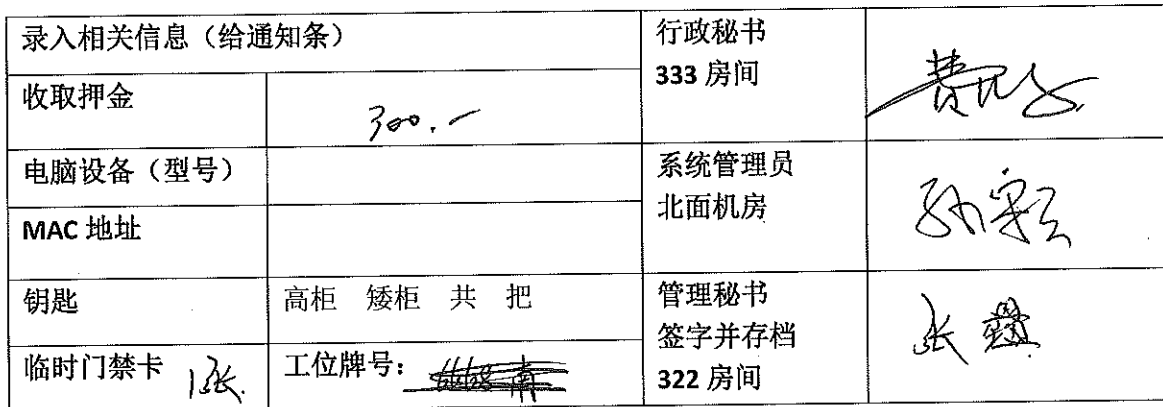 录入相关信息（给通知条）
行政秘书
333 房间
收取押金
300.-
电脑设备（型号）
系统管理员
北面机房
MAC 地址
钥匙
高柜 矮柜 共 把
管理秘书
签字并存档
322 房间
张
临时门禁卡 1张.
工位牌号：